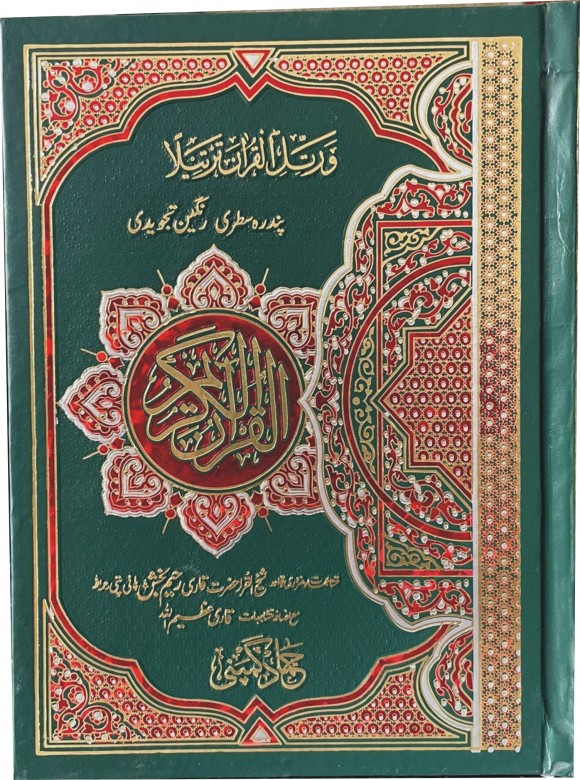 وَرَتِّلِ الْقُرْاٰنَ تَرْتِيْلًا
پندرہ سطری رنگین تجویدی
القرآن الکریم
شیخ القراء حضرت قاری رحیم بخش پانی پتی
مع اضافہ متشابہات قاری عظیم اللہ
حماد کمپنی